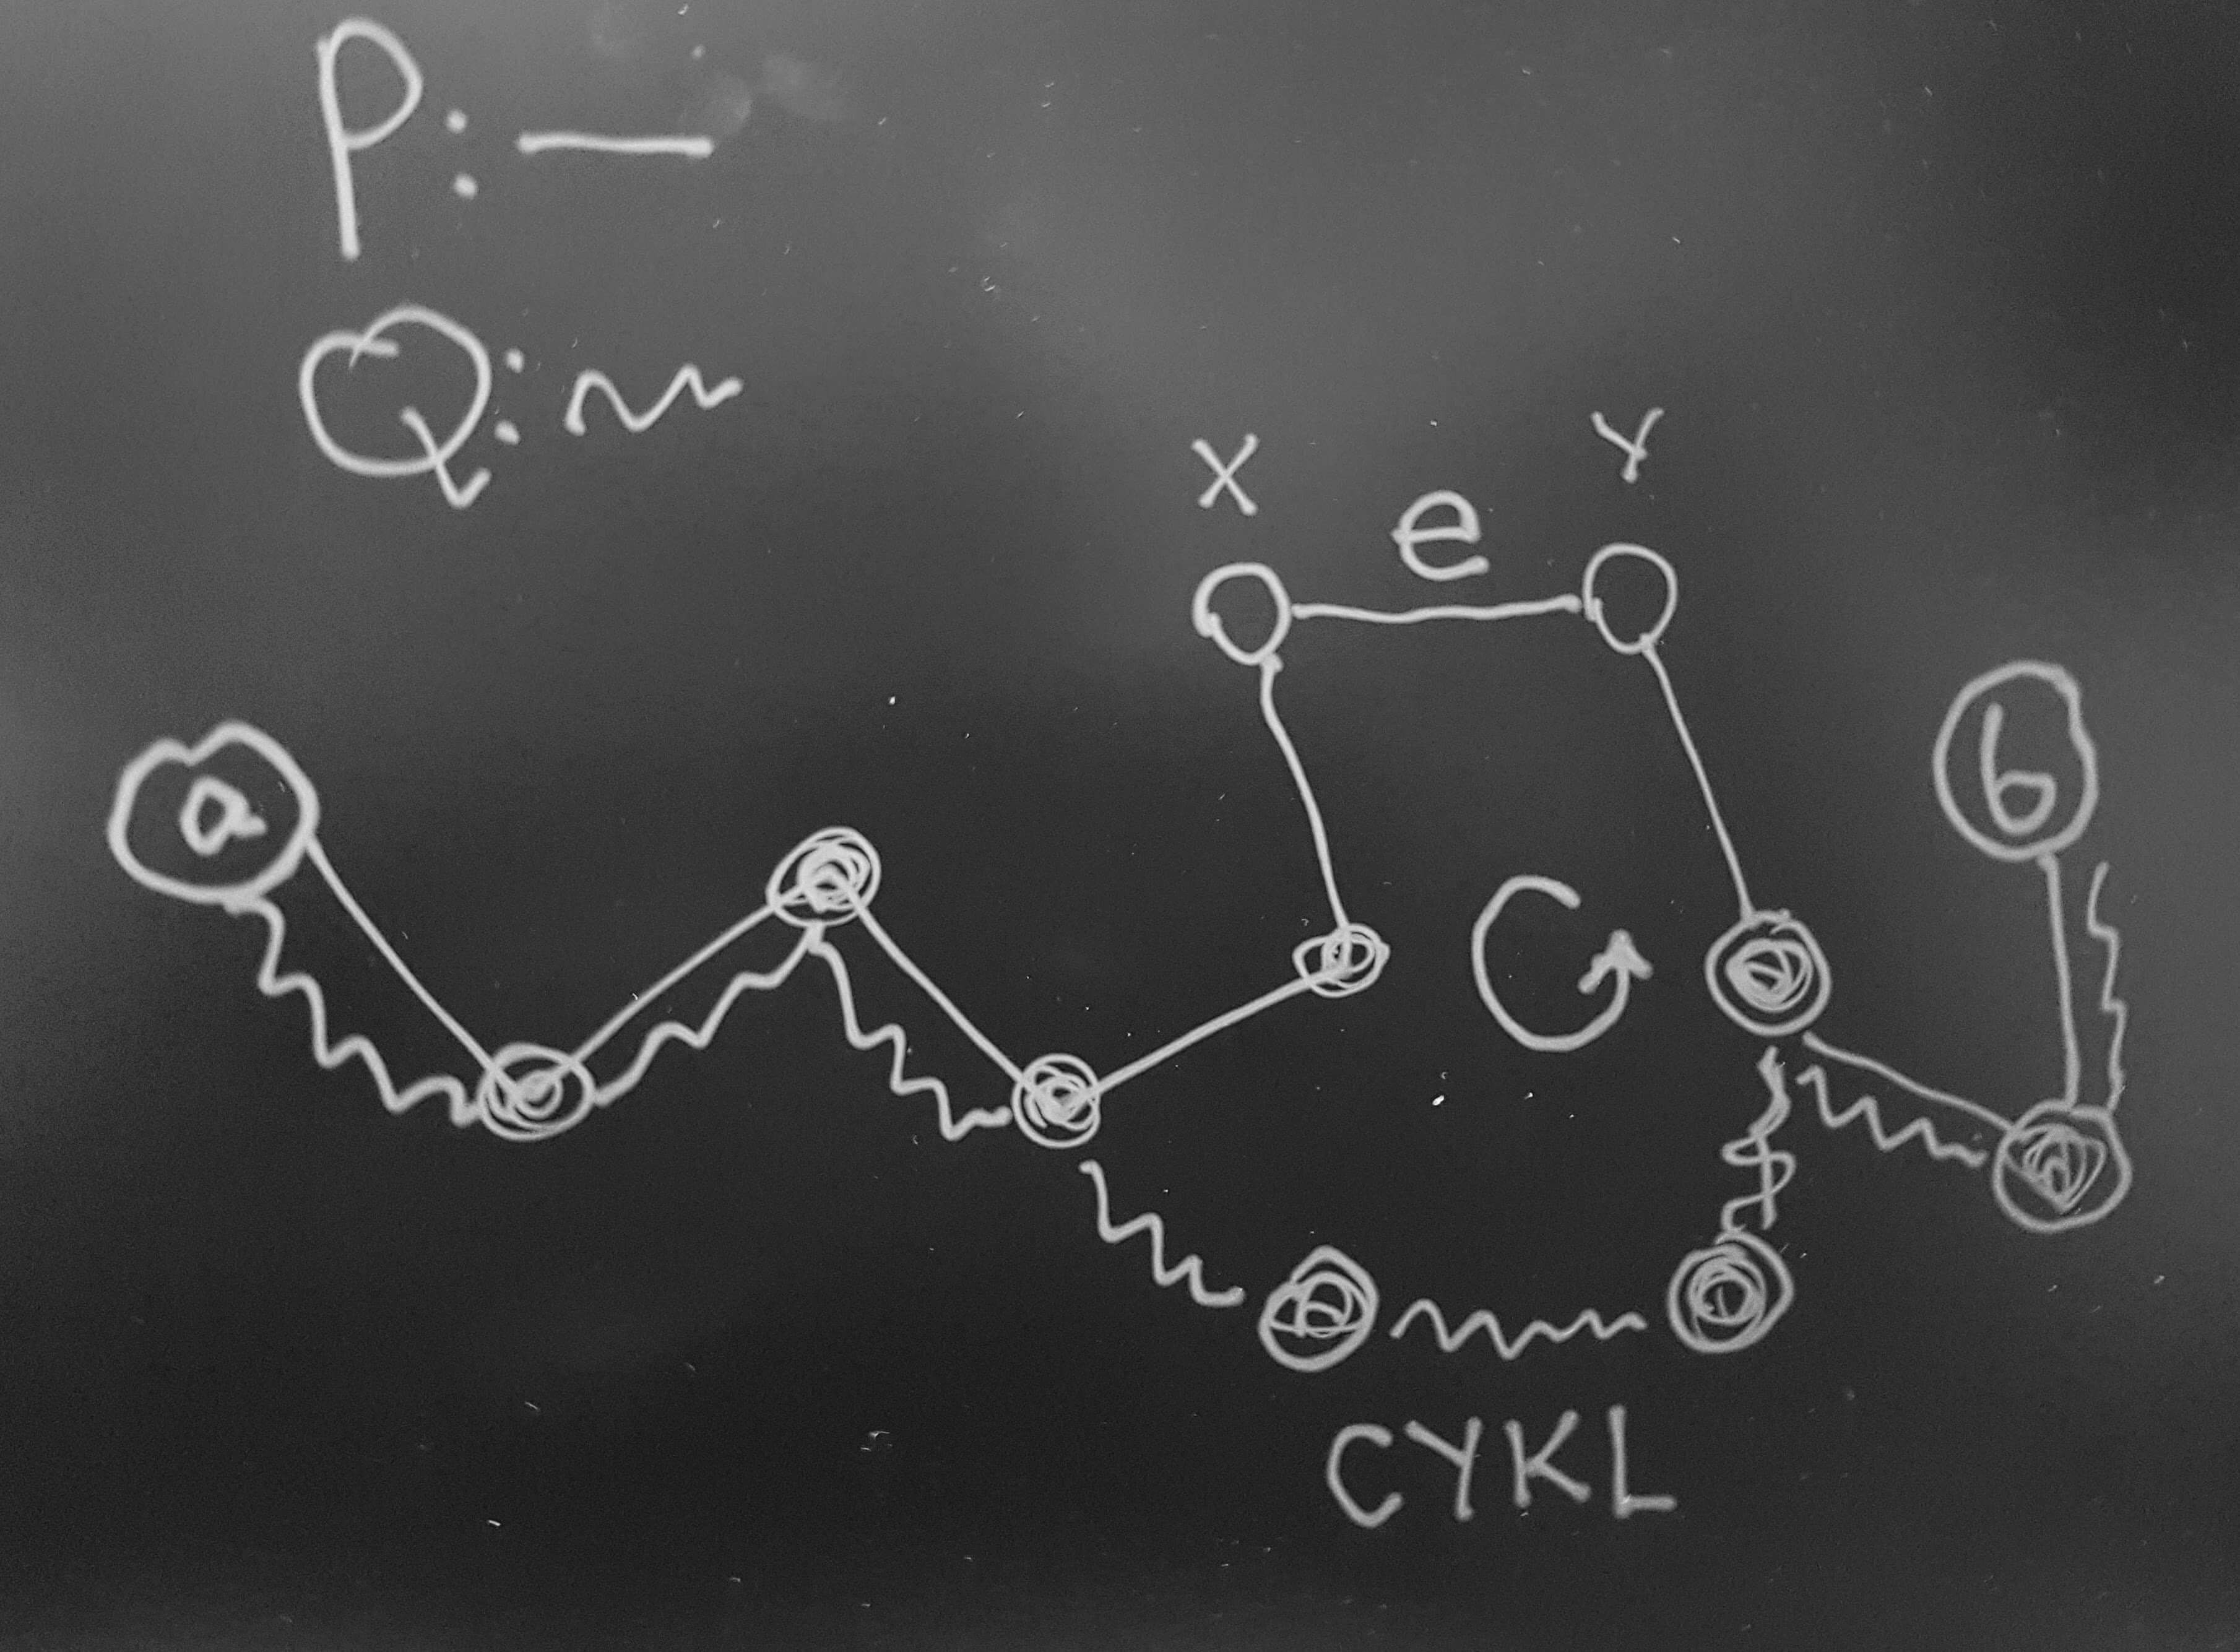 P: —
Q: ~
X e Y
a
b
CYKL